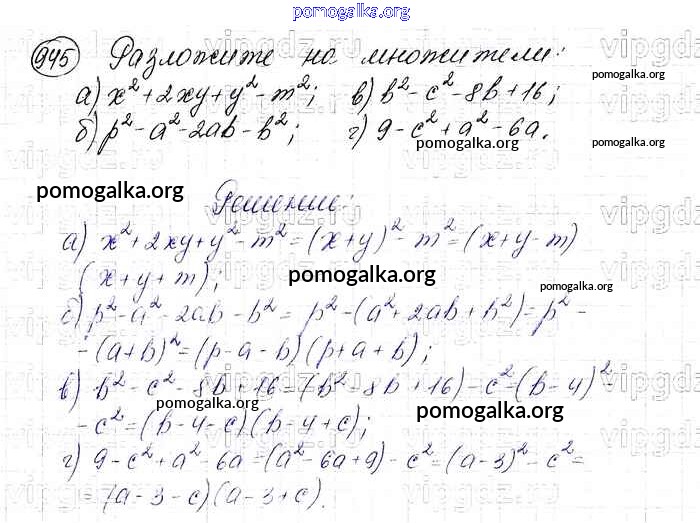 pomogalka.org
945 Разложите на множители:
а) x² + 2xy + y² - m²; в) b² - c² - 8b + 16;
б) p² - a² - 2ab - b²; г) 9 - c² + a² - 6a.
pomogalka.org
pomogalka.org
pomogalka.org
Решение:
а) x² + 2xy + y² - m² = (x+y)² - m² = (x+y-m)
(x+y+m);
pomogalka.org
pomogalka.org
б) p² - a² - 2ab - b² = p² - (a² + 2ab + b²) = p² -
- (a+b)² = (p-a-b)(p+a+b);
в) b² - c² - 8b + 16 = (b² - 8b + 16) - c² = (b-4)² -
- c² = (b-4-c)(b-4+c);
pomogalka.org
pomogalka.org
г) 9 - c² + a² - 6a = (a² - 6a + 9) - c² = (a-3)² - c² =
= (a-3-c)(a-3+c).
pomogalka.org